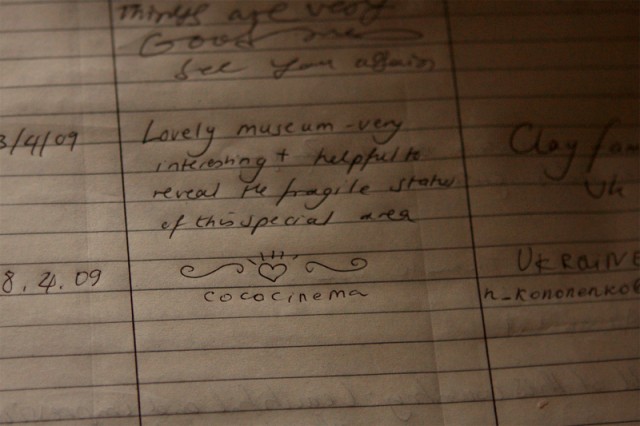 Things are very
Good
See you again
3/4/09
Lovely museum - very
interesting + helpful to
reveal the fragile status
of this special area
Clay
Uk
8.4.09
cococinema
UKRAINE
n_kononenko